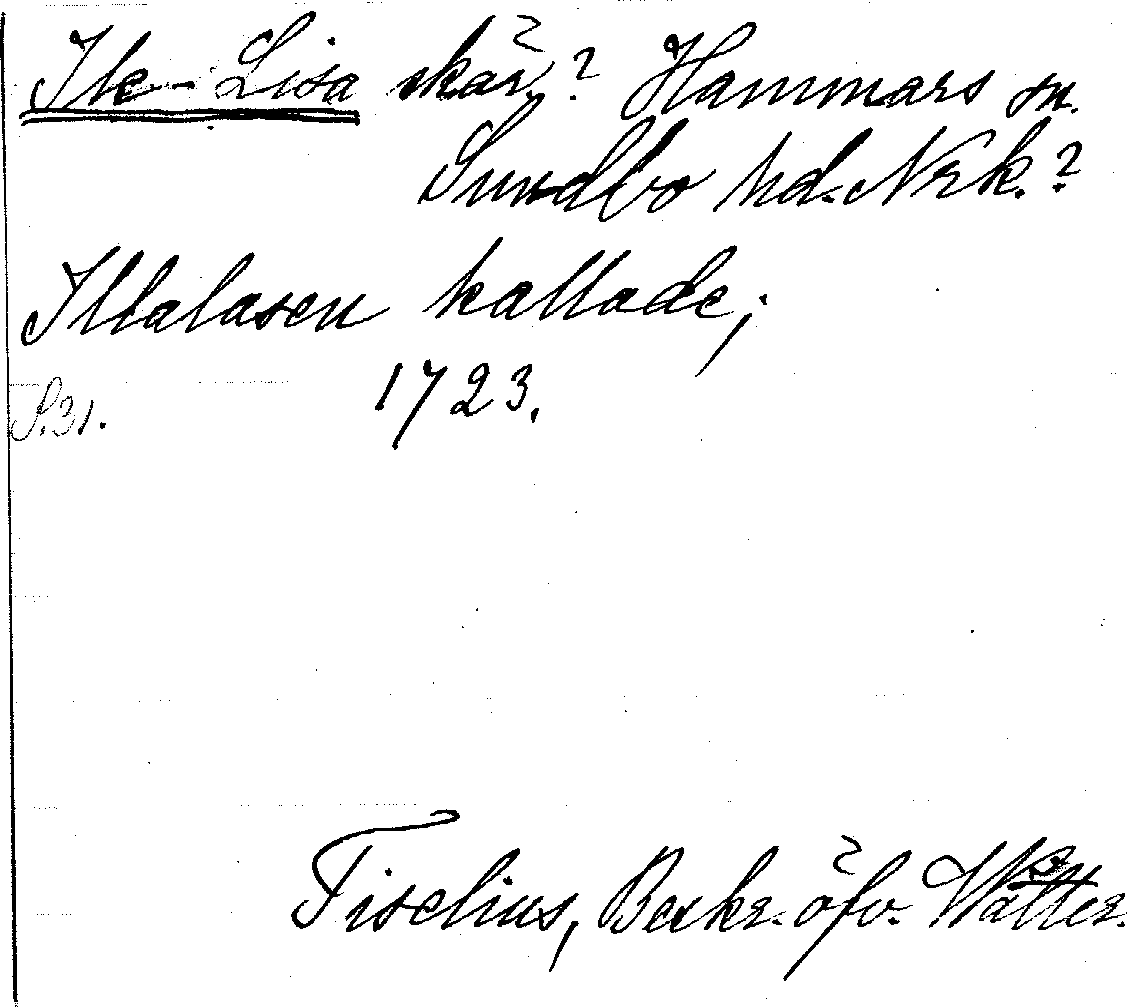 Ile-Lisa skär? Hammars sn.
Sundbo hd. Nrk.?
Illalasen kallade;
1723.
S.31.
Tiselius, Beskr. öfv. Wätter.